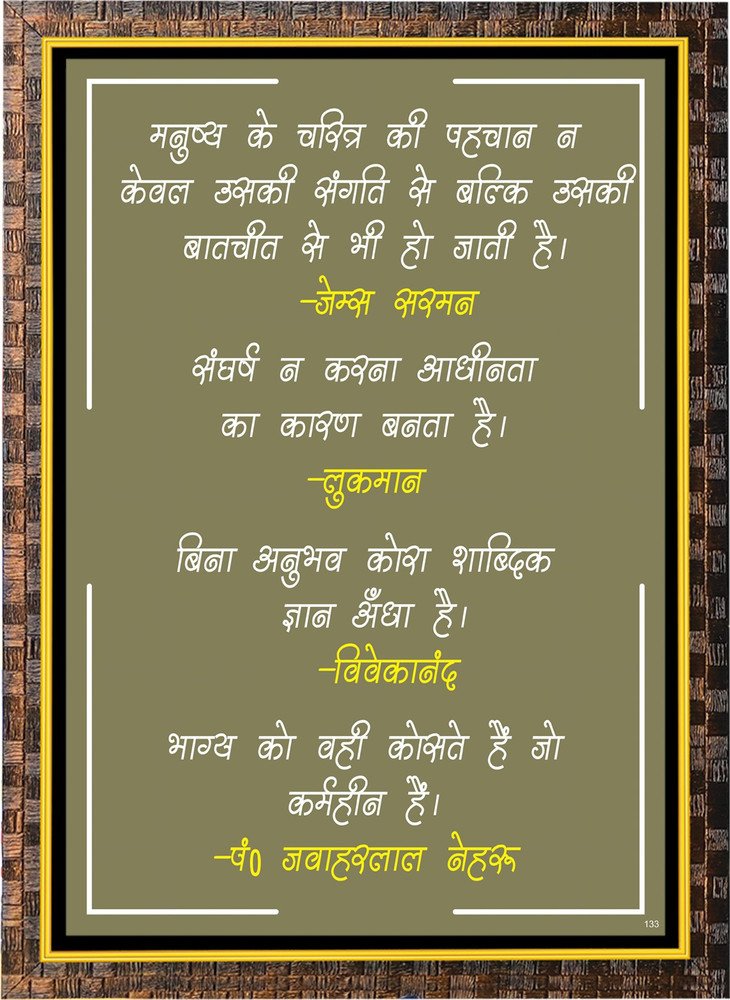 मनुष्य के चरित्र की पहचान न
केवल उसकी संगति से बल्कि उसकी
बातचीत से भी हो जाती है।
-जेम्स सरमन
संघर्ष न करना आधीनता
का कारण बनता है।
-लुकमान
बिना अनुभव कोरा शाब्दिक
ज्ञान अँधा है।
-विवेकानंद
भाग्य को वही कोसते हैं जो
कर्महीन हैं।
-पं0 जवाहरलाल नेहरू
133